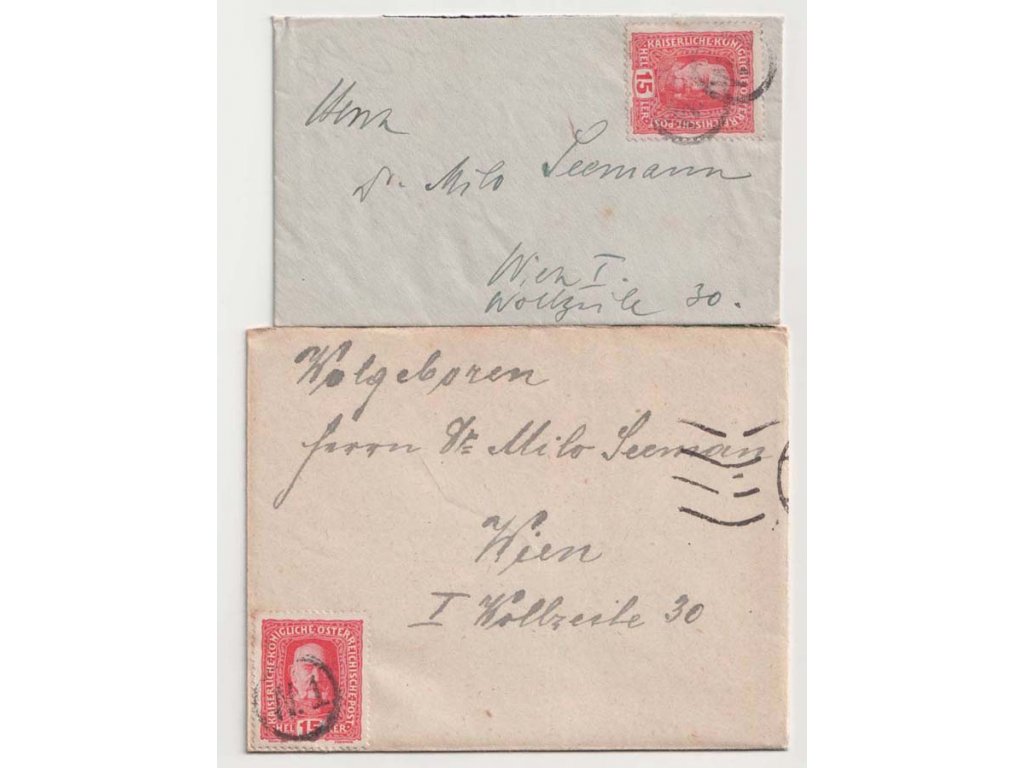 KAISERLICHE·KÖNIGLICHE·ÖSTERREICHISCHE·POST
HEL 15 LER
Herrn
Dr. Milo Seemann
Wien I.
Wollzeile 30.
Wolgeboren
Herrn Dr. Milo Seeman
Wien
I Wollzeile 30
KAISERLICHE·KÖNIGLICHE·ÖSTERREICHISCHE·POST
HEL 15 LER